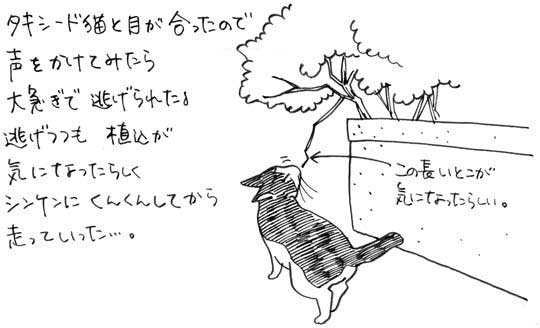 タキシード猫と目が合ったので
声をかけてみたら
大急ぎで逃げられた。
逃げつつも 植込が
気になったらしく
シンケンに くんくんしてから
走っていった…。
この長いとこが
気になったらしい。